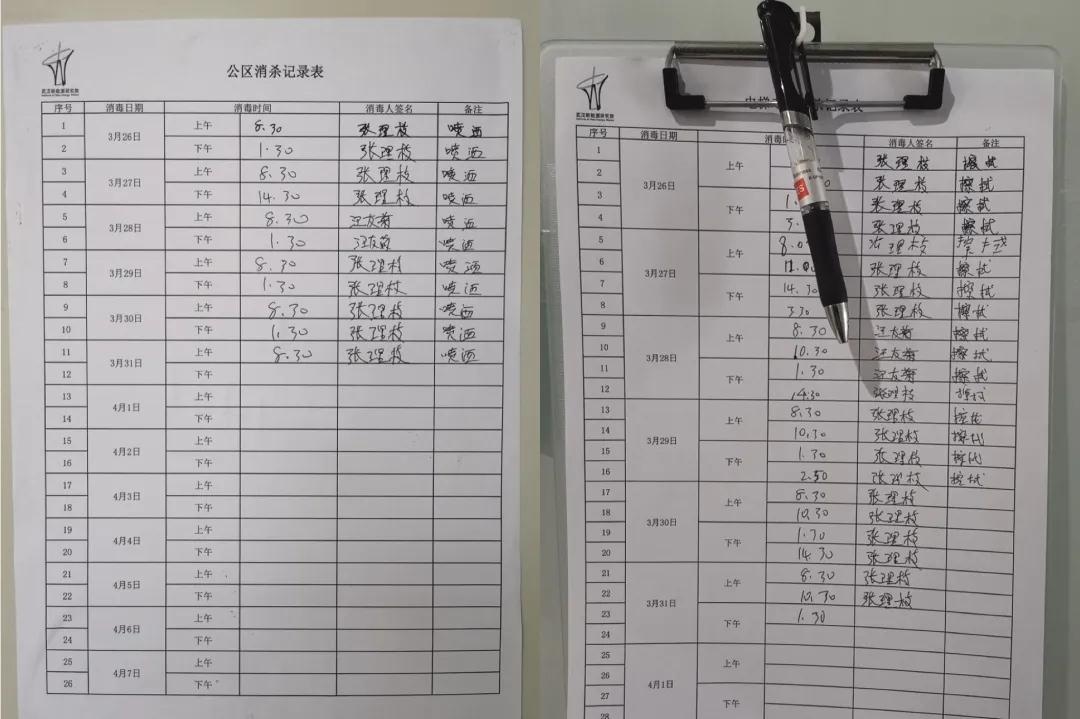 武汉新能源研究院
公区消杀记录表
序号 消毒日期 消毒时间 消毒人签名 备注
1 3月26日 上午 8.30 张理枝 喷洒
2 下午 1.30 张理枝 喷洒
3 3月27日 上午 8.30 张理枝 喷洒
4 下午 14.30 张理枝 喷洒
5 3月28日 上午 8.30 汪友菊 喷洒
6 下午 1.30 汪友菊 喷洒
7 3月29日 上午 8.30 张理枝 喷洒
8 下午 1.30 张理枝 喷洒
9 3月30日 上午 8.30 张理枝 喷洒
10 下午 1.30 张理枝 喷洒
11 3月31日 上午 8.30 张理枝 喷洒
12 下午
13 4月1日 上午
14 下午
15 4月2日 上午
16 下午
17 4月3日 上午
18 下午
19 4月4日 上午
20 下午
21 4月5日 上午
22 下午
23 4月6日 上午
24 下午
25 4月7日 上午
26 下午
武汉新能源研究院
电梯 记录表
序号 消毒日期 消毒 消毒人签名 备注
1 3月26日 上午 张理枝 擦拭
2 张理枝 擦拭
3 下午 张理枝 擦拭
4 张理枝 擦拭
5 3月27日 上午 张理枝 擦拭
6 张理枝 擦拭
7 下午 14.30 张理枝 擦拭
8 3.30 张理枝 擦拭
9 3月28日 上午 8.30 汪友菊 擦拭
10 10.30 汪友菊 擦拭
11 下午 1.30 汪友菊 擦拭
12 14.30 张理枝 擦拭
13 3月29日 上午 8.30 张理枝 擦拭
14 10.30 张理枝 擦拭
15 下午 1.30 张理枝 擦拭
16 2.50 张理枝 擦拭
17 3月30日 上午 8.30 张理枝
18 10.30 张理枝
19 下午 1.30 张理枝
20 14.30 张理枝
21 3月31日 上午 8.30 张理枝
22 10.30 张理枝
23 下午 1.30
24
25 4月1日 上午
26
27 下午
28